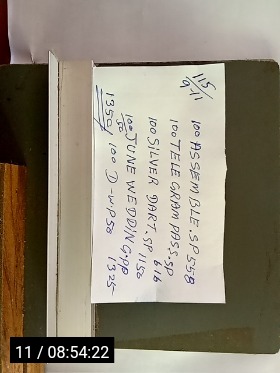 115
9-11
100 ASSEMBLE.SP.558
100 TELEGRAM PASS.SP
616
100 SILVER DART.SP 1150
100 JUNE WEDDING.PB
100 D-WP50 1325-
1350
11 / 08:54:22